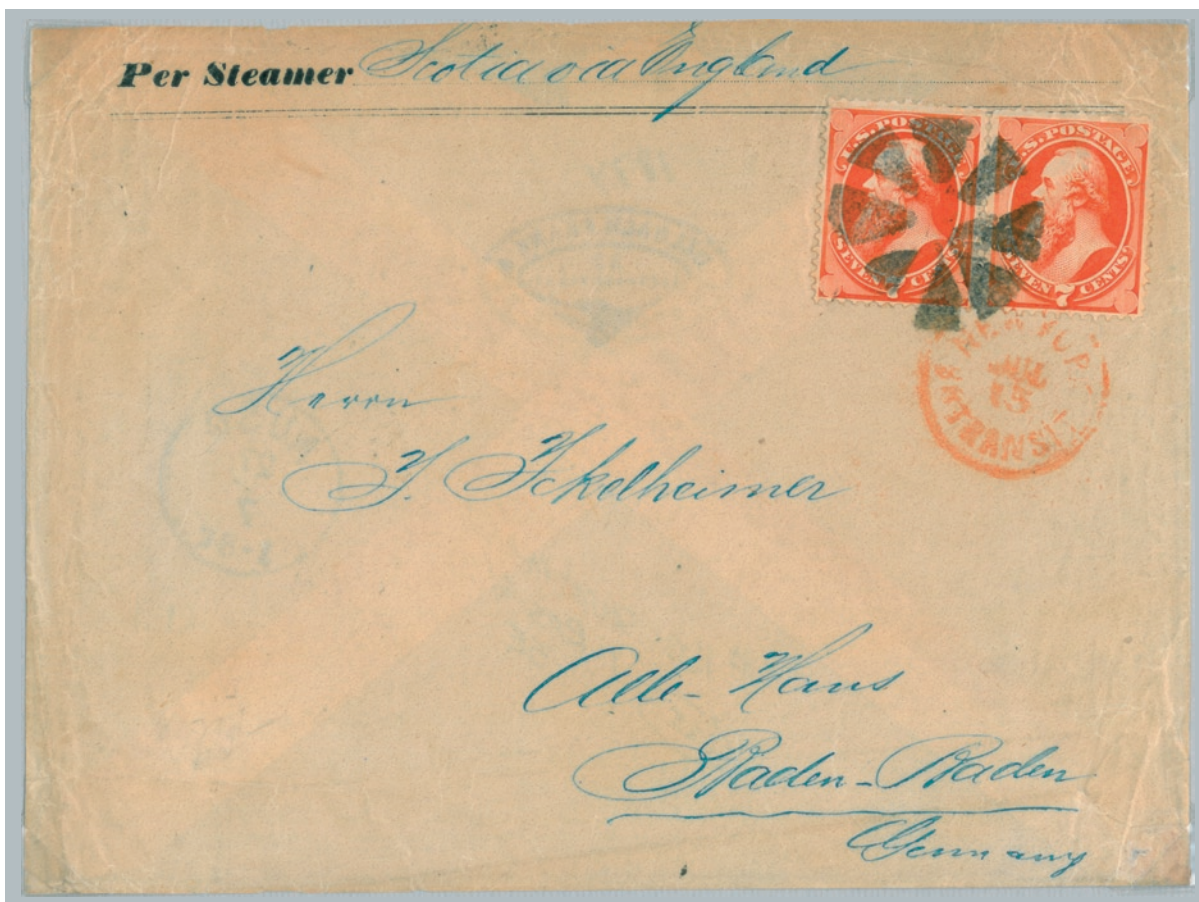 Per Steamer Scotia via England
U.S. POSTAGE
SEVEN 7 CENTS
U.S. POSTAGE
SEVEN 7 CENTS
NEW YORK TRANSIT
15
Herrn
I. Ickelheimer
Alle-Haus
Baden-Baden
Germany